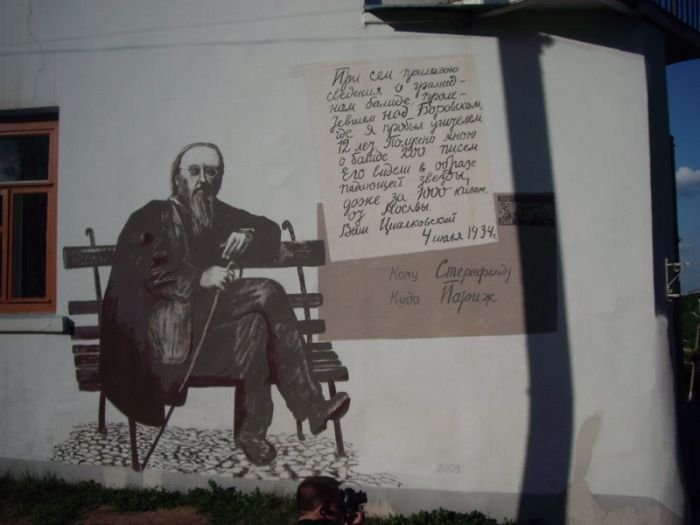 При сем прилагаю
сведения о громад-
ном болиде, проле-
тевшем над Боровском,
где я пробыл учителем
12 лет. Получено мною
о болиде 200 писем
Его видели в образе
падающей звезды,
даже за 1000 килом.
от Москвы.
Ваш Циолковский
4 июля 1934г.
Кому Стернфельду
Куда Париж
2003